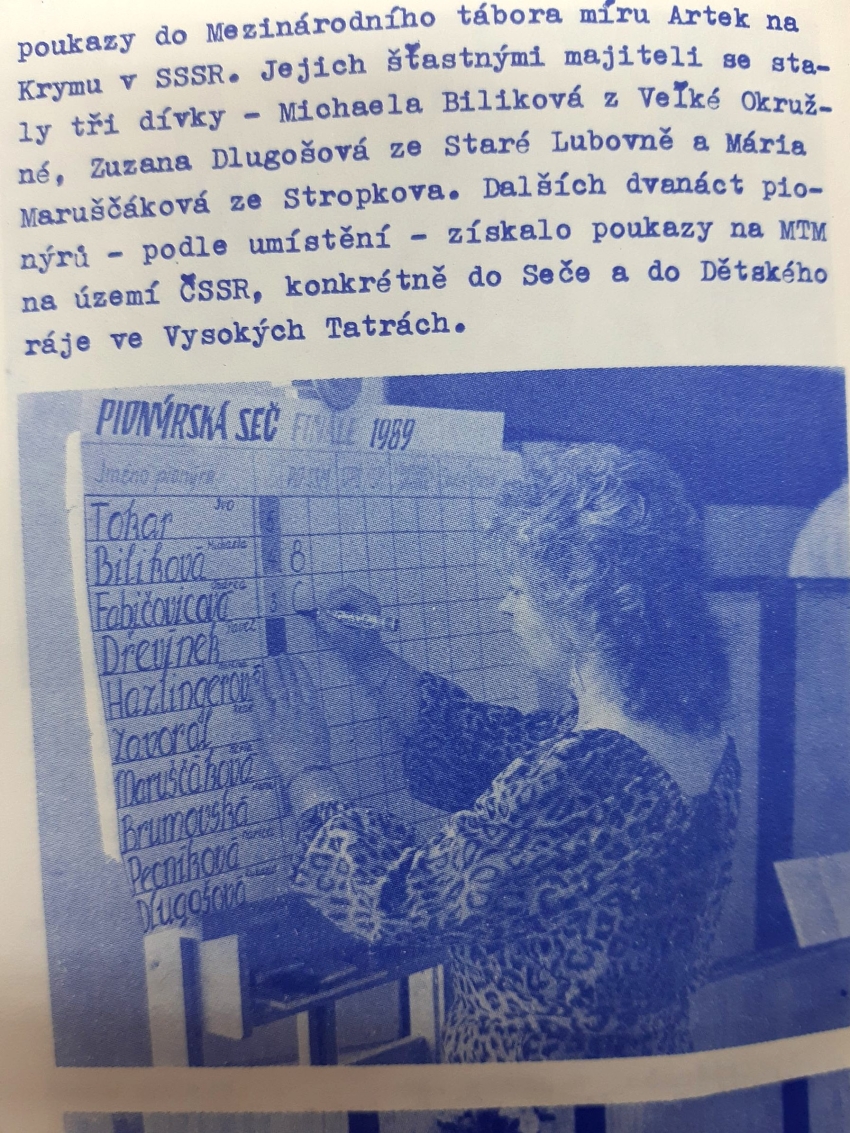 poukazy do Mezinárodního tábora míru Artek na
Krymu v SSSR. Jejich šťastnými majiteli se sta-
ly tři dívky - Michaela Biliková z Veľké Okruž-
né, Zuzana Dlugošová ze Staré Lubovně a Mária
Maruščáková ze Stropkova. Dalších dvanáct pio-
nýrů - podle umístění - získalo poukazy na MTM
na území ČSSR, konkrétně do Seče a do Dětského
ráje ve Vysokých Tatrách.
PIONÝRSKÁ SEČ FINÁLE 1989
Jméno pionýra
Tokar Ivo 5
Biliková Michaela 4 8
Fabičovicová Andrea 3
Dřevjnek
Hazlingerová
Zavoral
Maruščáková
Brumovská
Pecníková
Dlugošová